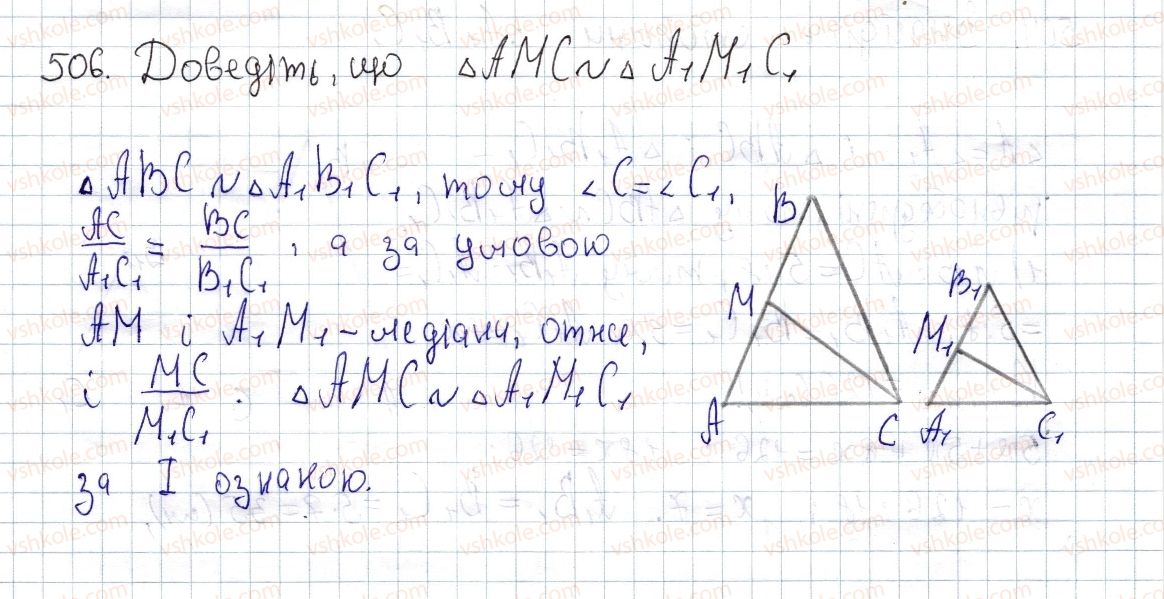 506. Доведіть, що △AMC ~ △A₁M₁C₁
△ABC ~ △A₁B₁C₁, тому ∠C = ∠C₁,
AC/A₁C₁ = BC/B₁C₁, а за умовою
AM і A₁M₁ – медіани, отже,
і MC/M₁C₁. △AMC ~ △A₁M₁C₁
за I ознакою.
B
M
A
C
B₁
M₁
A₁
C₁
vshkole.com